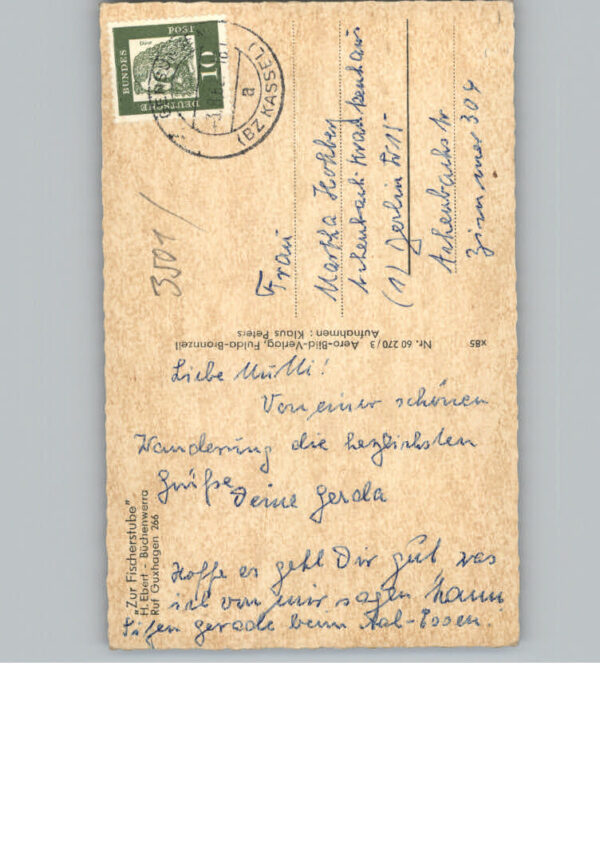 DEUTSCHE
BUNDES
POST
10
Dürer
(BZ KASSEL)
a
3501
Frau
Martha
Achenbach-Krankenhaus
(1) Berlin W 15
Achenbachstr
Zimmer 304
x85
Nr. 60 270/3 Aero-Bild-Verlag, Fulda-Bronnzell
Aufnahmen: Klaus Peters
Liebe Mutti!
Von einer schönen
Wanderung die herzlichsten
Grüße
Deine Gerda
Hoffe es geht Dir gut was
ich von mir sagen kann
Sitzen gerade beim Aal-Essen.
"Zur Fischerstube"
H. Ebert - Büchenwerra
Ruf Guxhagen 266